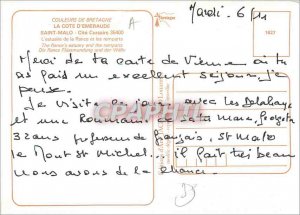 Mardi. 6/11
A
COULEURS DE BRETAGNE
LA COTE D'EMERAUDE
SAINT-MALO - Cité Corsaire 35400
L'estuaire de la Rance et les remparts
The Rance's estuary and the ramparts
1827
Merci de ta carte de Vienne tu
as fait un excellent séjour, je
pense.
Je visite ce jour avec les Delahaye
et une Roumaine et sa
32 ans professeur de français, St Malo
le Mont St Michel... il fait très beau
nous avons de la chance.
D